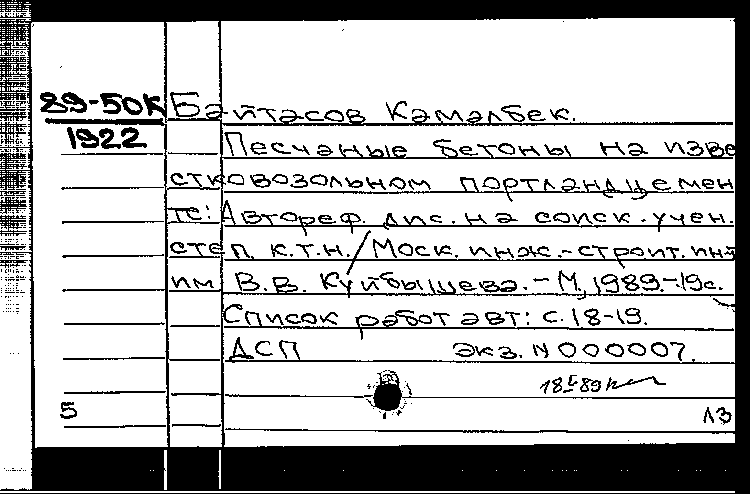 89-50К Байтасов Камалбек.
1922
Песчаные бетоны на изве
стковозольном портландцемен
те: Автореф. дис. на соиск. учен.
степ. к.т.н. / Моск. инж.-строит. ин-т
им В.В. Куйбышева. - М, 1989.-19с.
Список работ авт: с. 18-19.
ДСП экз. N 000007.
5 13